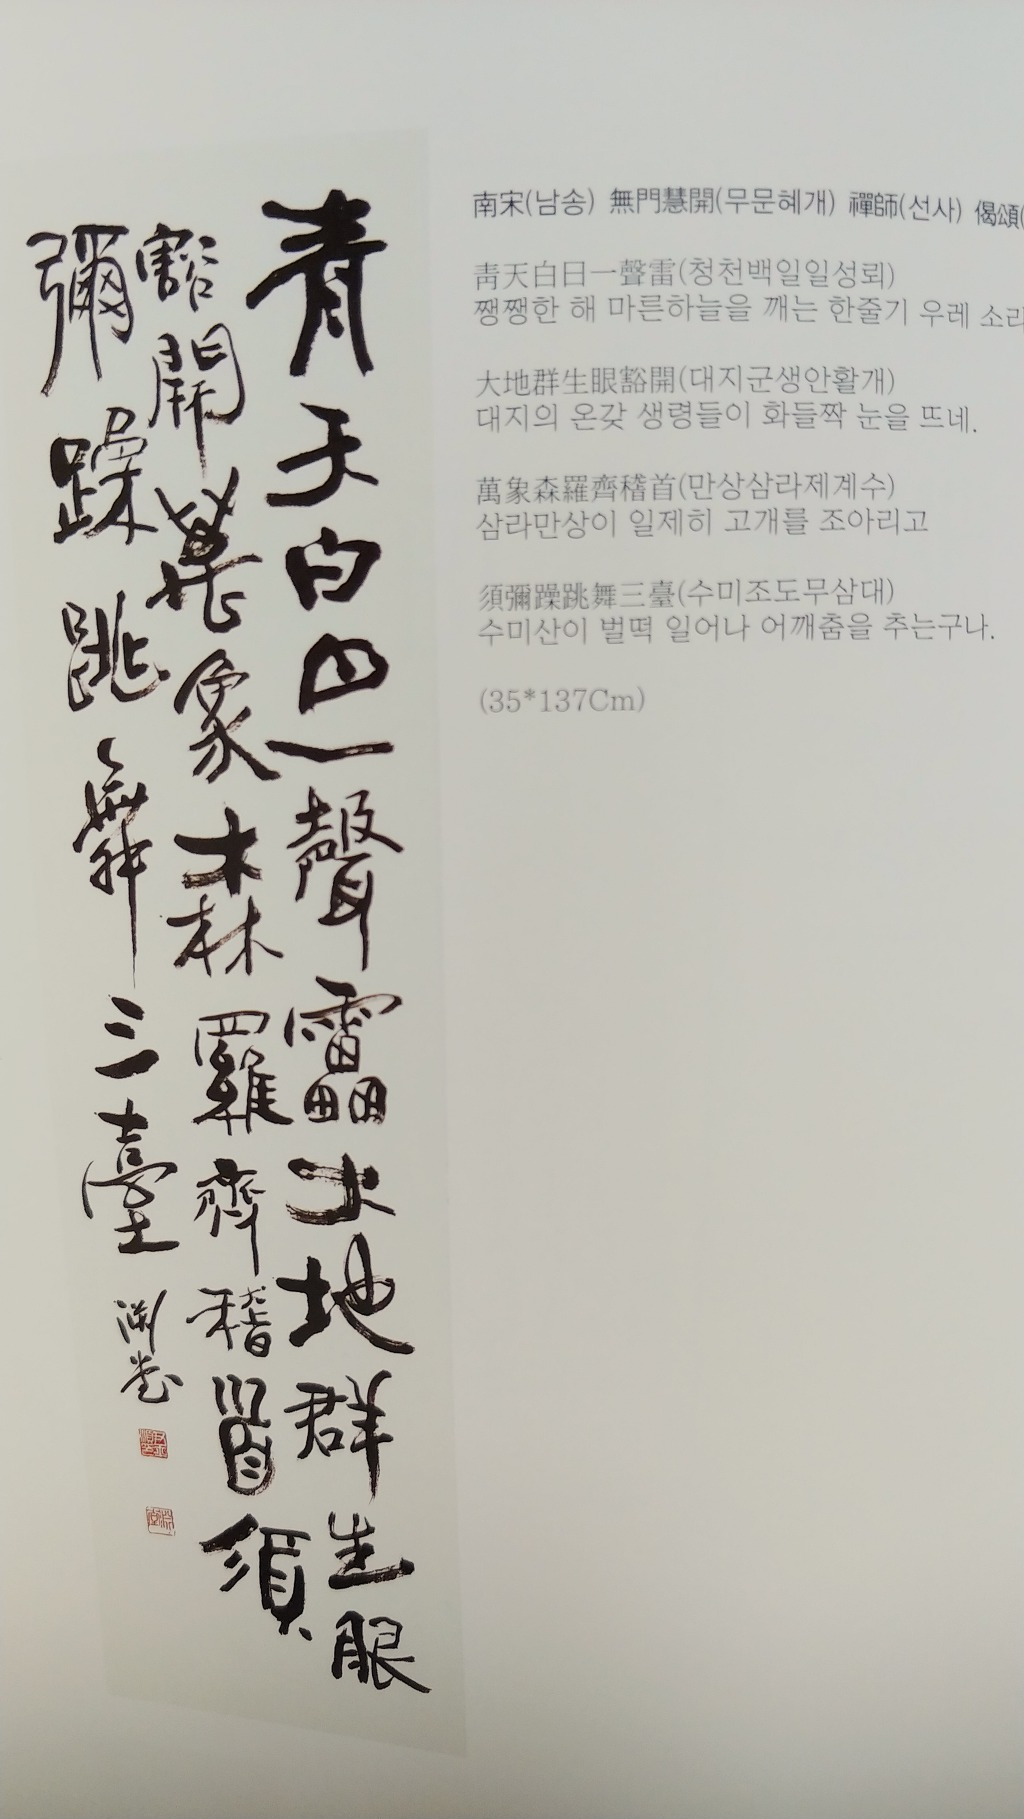 青天白日一聲雷大地群生眼
豁開萬象森羅齊稽首須
彌躁跳舞三臺
淵堂
南宋(남송) 無門慧開(무문혜개) 禪師(선사) 偈頌(
靑天白日一聲雷(청천백일일성뢰)
쨍쨍한 해 마른하늘을 깨는 한줄기 우레 소리
大地群生眼豁開(대지군생안활개)
대지의 온갖 생령들이 화들짝 눈을 뜨네.
萬象森羅齊稽首(만상삼라제계수)
삼라만상이 일제히 고개를 조아리고
須彌躁跳舞三臺(수미조도무삼대)
수미산이 벌떡 일어나 어깨춤을 추는구나.
(35*137Cm)